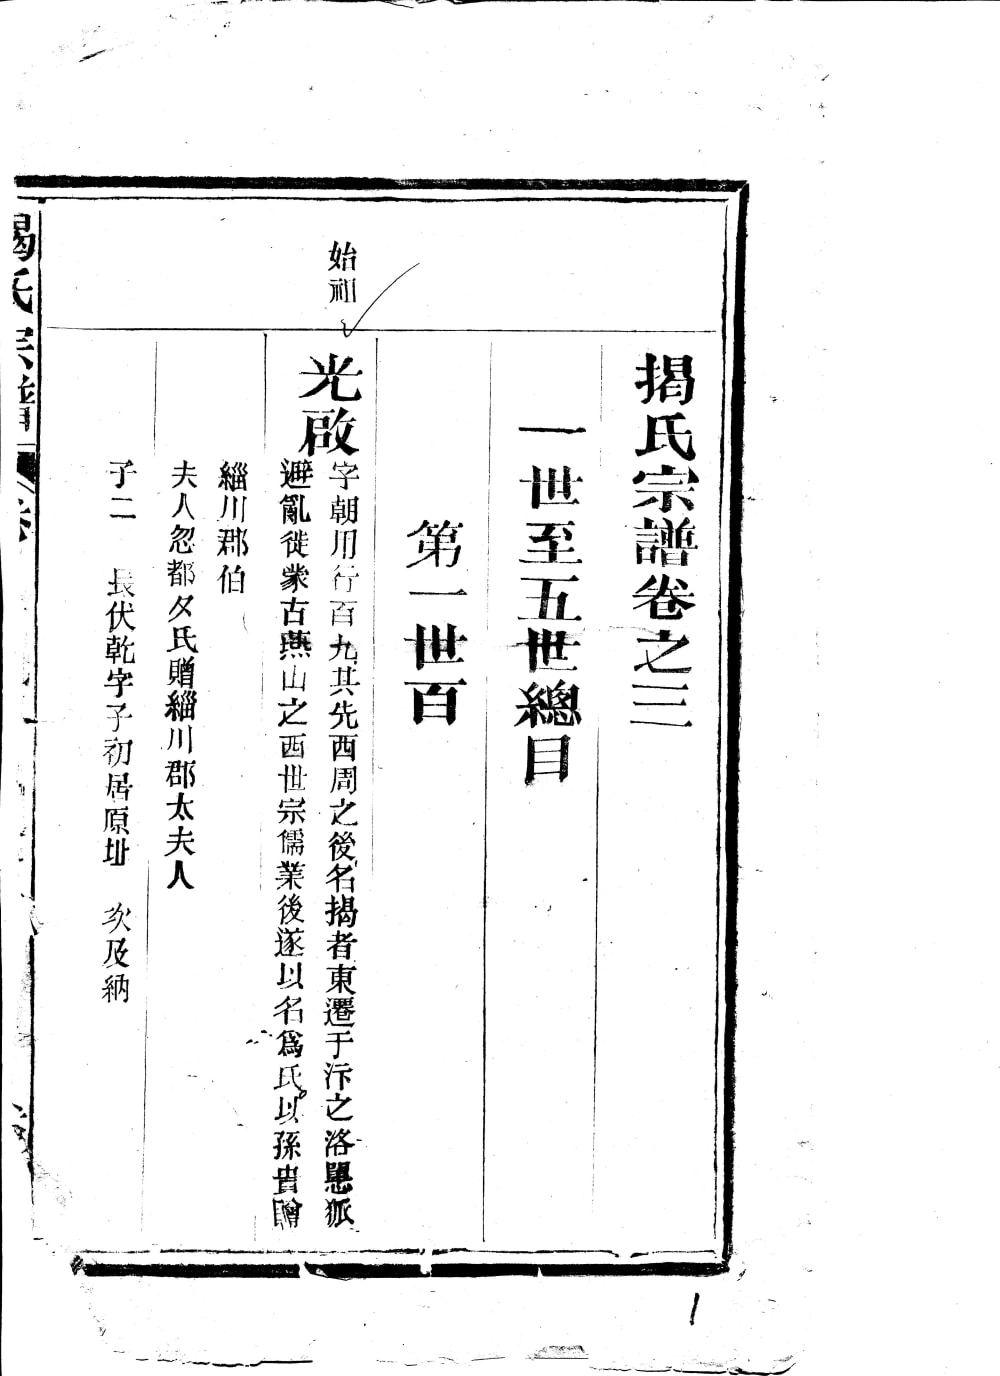 揭氏宗譜卷之三
一世至五世總目
第一世百
始祖
光啟
字朝用行百九其先西周之後名揭者東遷于汴之洛恩狐
避亂徙蒙古燕山之西世宗儒業後遂以名爲氏以孫貴贈
緇川郡伯
夫人忽都夕氏贈緇川郡太夫人
子二 長伏乾字子初居原址 次及納
揭氏宗譜 卷
1